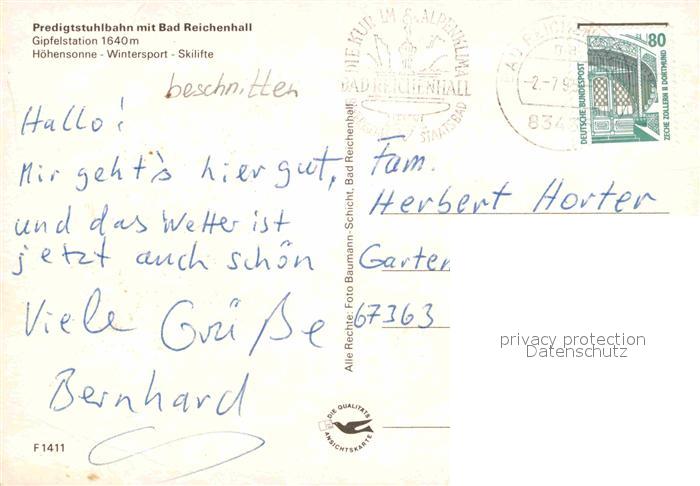 Predigtstuhlbahn mit Bad Reichenhall
Gipfelstation 1640 m
Höhensonne - Wintersport - Skilifte
beschnitten
Hallo!
Mir geht's hier gut,
und das Wetter ist
jetzt auch schön
Viele Grüße
Bernhard
F 1411
Alle Rechte: Foto Baumann-Schicht, Bad Reichenhall
DIE QUALITÄTS
ANSICHTSKARTE
DIE KUR IM ALPENKLIMA
BAD REICHENHALL
STAATSBAD
BAD REICHENHALL
-2.-7.9
834
80
DEUTSCHE BUNDESPOST
ZECHE ZOLLERN II DORTMUND
Fam.
Herbert Horter
Garten
67363
privacy protection
Datenschutz